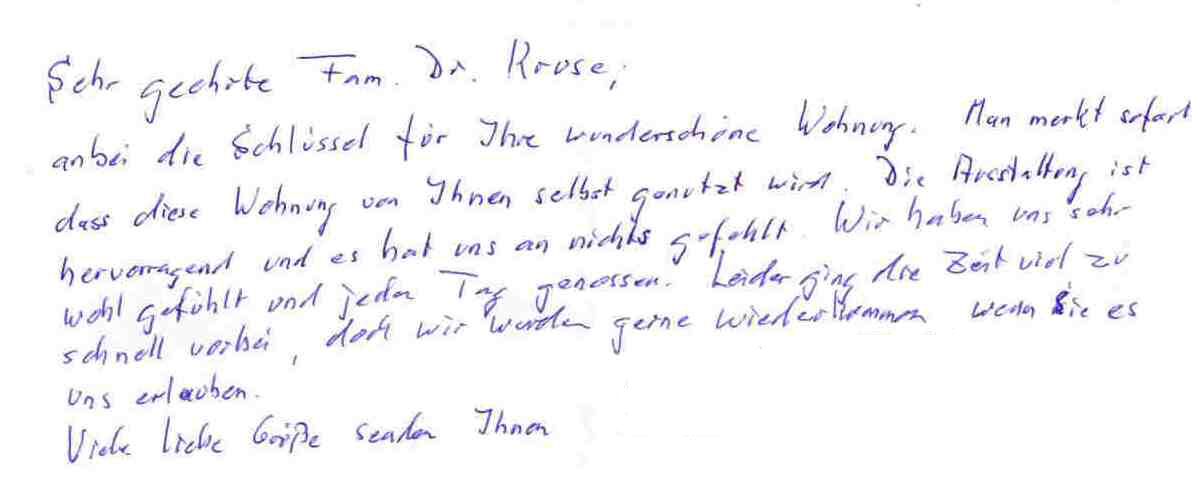 Sehr geehrte Fam. Dr. Kruse,
anbei die Schlüssel für Ihre wunderschöne Wohnung. Man merkt sofort
dass diese Wohnung von Ihnen selbst genutzt wird. Die Ausstattung ist
hervorragend und es hat uns an nichts gefehlt. Wir haben uns sehr
wohl gefühlt und jeden Tag genossen. Leider ging die Zeit viel zu
schnell vorbei, doch wir werden gerne wiederkommen wenn Sie es
uns erlauben.
Viele liebe Grüße senden Ihnen